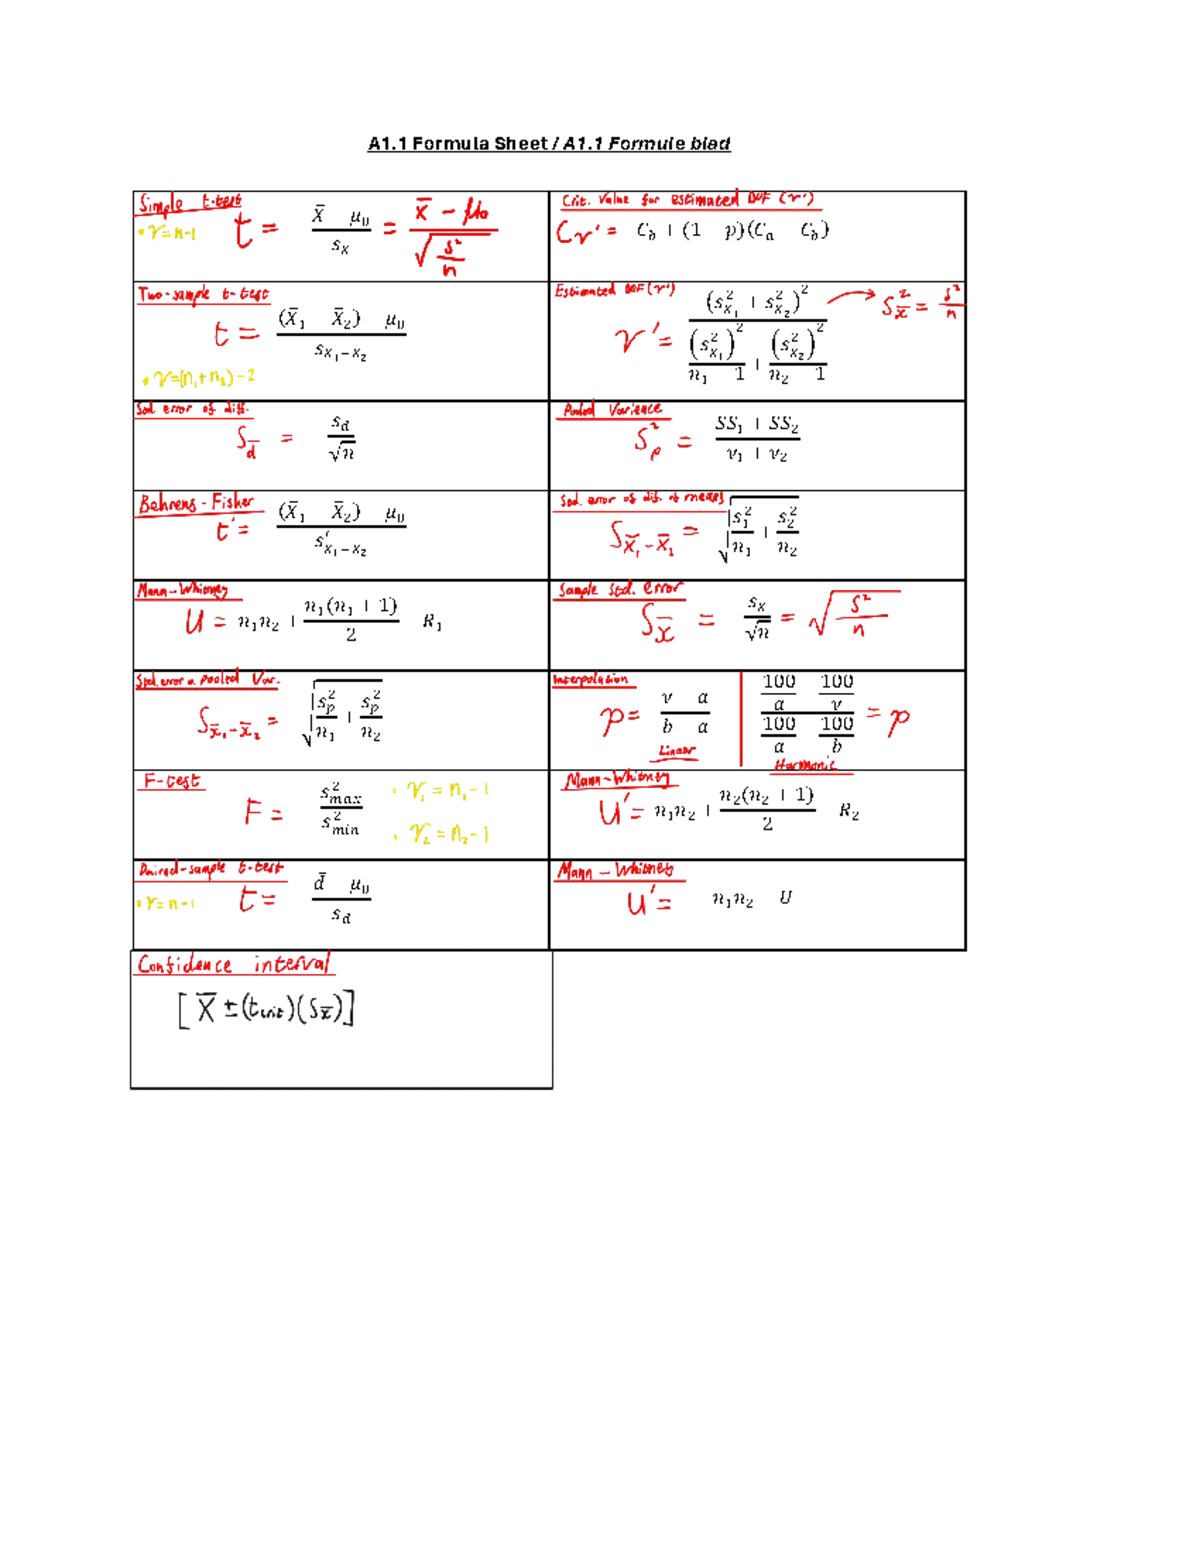 A1.1 Formula Sheet / A1.1 Formule blad
Simple t-test
• ν = n-1
t = X̄ μ₀ / s_X̄ = x̄ - μ₀ / √(s²/n)
Crit. Value for estimated DOF (ν')
Cν' = C_b + (1 p)(C_a C_b)
Two-sample t-test
t = (X̄₁ X̄₂) μ₀ / s_X̄₁−X̄₂
• ν=(n₁+n₂)-2
Estimated DOF (ν')
ν' = (s²_X̄₁ + s²_X̄₂)² / ((s²_X̄₁)² / n₁ 1 + (s²_X̄₂)² / n₂ 1)
S²_x̄ = s²/n
Std. error of diff.
S_d̄ = s_d / √n
Pooled Varience
S²_p = SS₁ + SS₂ / ν₁ + ν₂
Behrens-Fisher
t' = (X̄₁ X̄₂) μ₀ / s'_X̄₁−X̄₂
Std. error of dif. of means
S_X̄₁-X̄₂ = √(s²₁/n₁ + s²₂/n₂)
Mann-Whitney
U = n₁n₂ + n₁(n₁ + 1) / 2 R₁
Sample Std. error
S_x̄ = s_X / √n = √(s²/n)
Std. error Pooled Var.
S_x̄₁-x̄₂ = √(s²_p/n₁ + s²_p/n₂)
Interpolation
p = ν a / b a
Linear
100/a 100/ν / 100/a 100/b = p
Harmonic
F-test
F = s²_max / s²_min
• ν₁ = n₁-1
• ν₂ = n₂-1
Mann-Whitney
U' = n₁n₂ + n₂(n₂ + 1) / 2 R₂
Paired-sample t-test
• ν = n-1
t = d̄ μ₀ / s_d̄
Mann-Whitney
U' = n₁n₂ U
Confidence interval
[X̄ ± (t_crit)(S_x̄)]